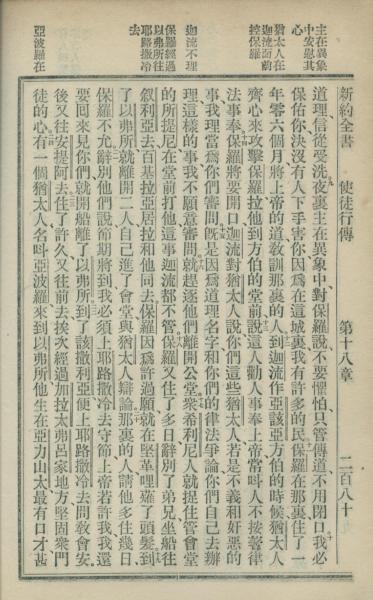 新約全書 使徒行傳 第十八章 二百八十
主在異象中安慰其心
猶太人在迦流面前控保羅
迦流不理
保羅經過以弗所往耶路撒冷去
亞波羅在
道理信從受洗夜裏主在異象中對保羅說不要懼怕只管傳道不用閉口我必
保佑你決沒有人下手害你因爲在這城裏我有許多的民保羅在那裏住了一
年零六個月將上帝的道敎訓那裏的人到迦流作亞該亞方伯的時候猶太人
齊心來攻擊保羅拉他到方伯的堂前說這人勸人事奉上帝當呌人不按著律
法事奉保羅將要開口迦流對猶太人說你們這些猶太人若是不義和奸惡的
事我理當爲你們審問旣是因爲道理名字和你們的律法爭論你們自己去辦
理這樣的事我不願意審問就趕逐他們離開公堂衆希利尼人就捉住管會堂
的所提尼在堂前打他這事迦流都不管保羅又住了多日辭別了弟兄坐船往
叙利亞去百基拉亞居拉和他同去保羅因爲許過願就在堅革哩薙了頭髮到
了以弗所就離開二人自己進了會堂與猶太人辯論那裏的人請他多住幾日
保羅不允辭別他們說節期將到我必須上耶路撒冷去守節上帝若許我我還
要回來見你們就開船離了以弗所到了該撒利亞便上耶路撒冷去問敎會安
後又往安提阿去住了許久又往前去挨次經過加拉太弗呂家地方堅固衆門
徒的心有一個猶太人名呌亞波羅來到以弗所他生在亞力山太最有口才甚